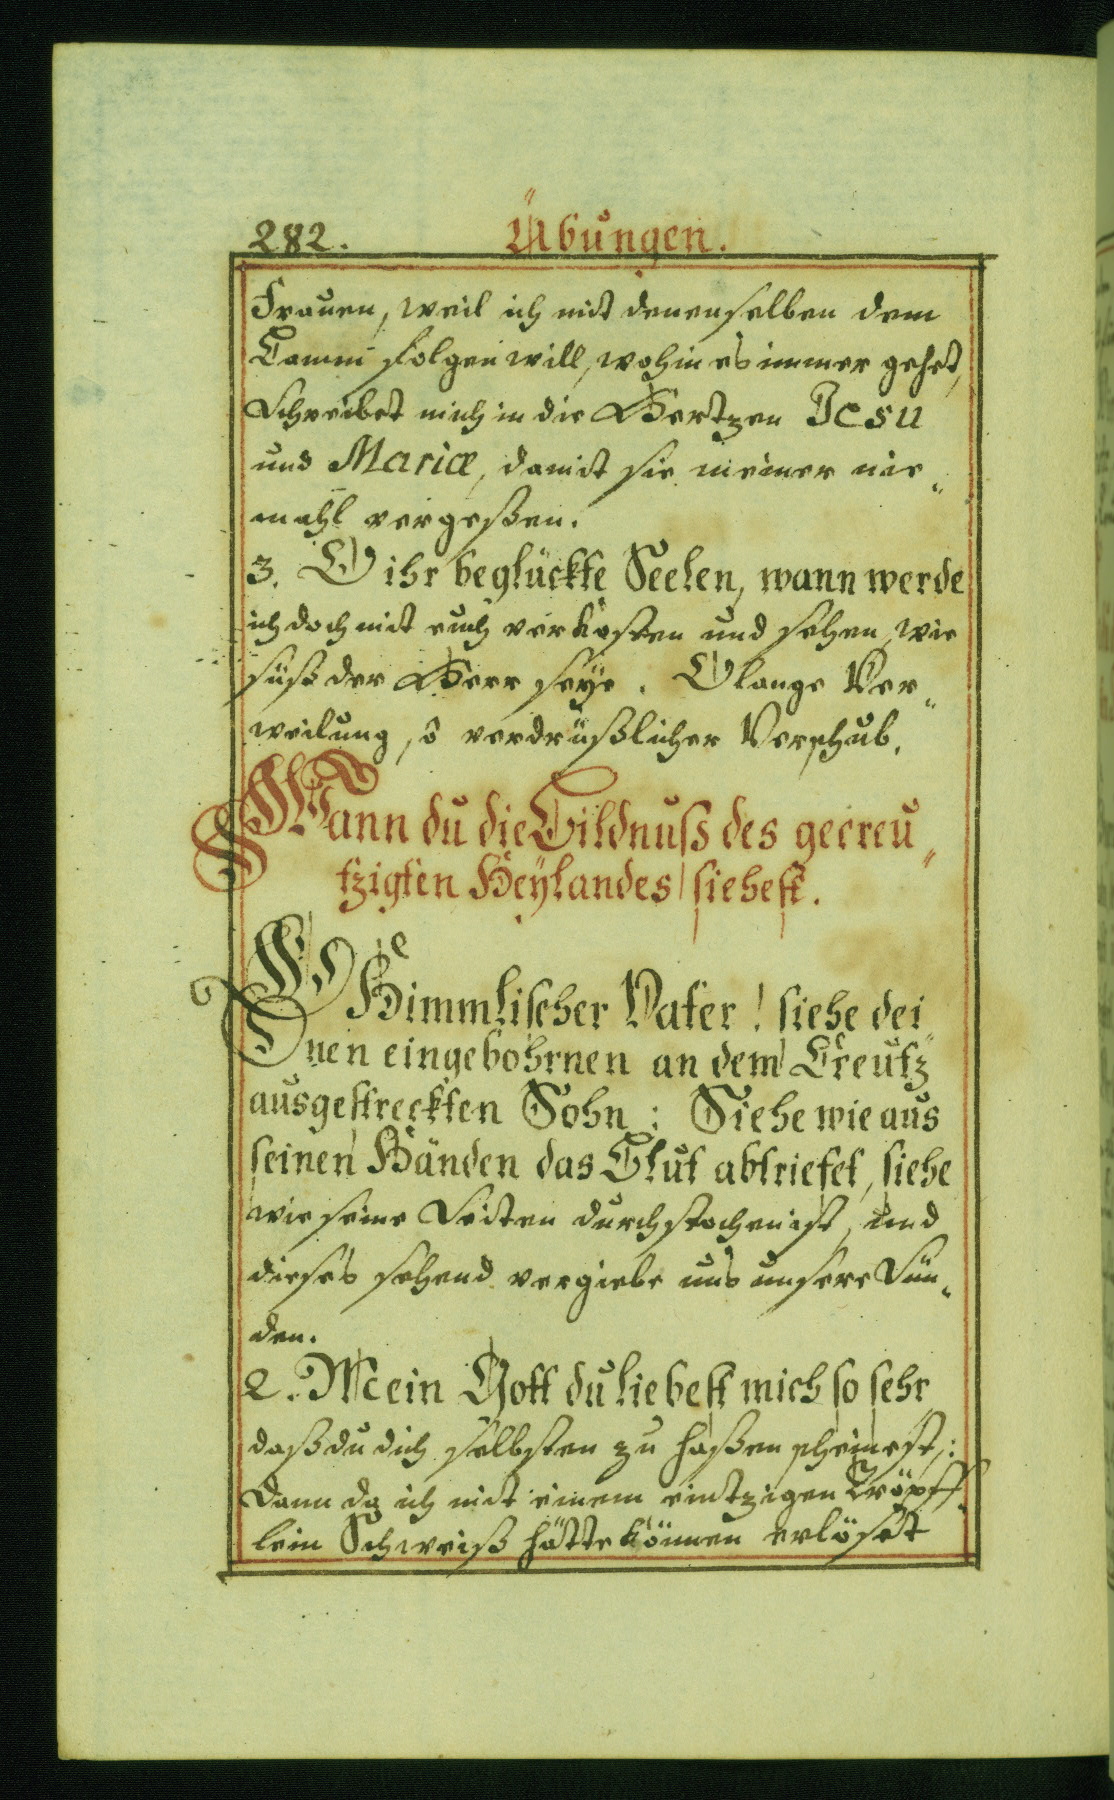 282. Übungen.
Frauen, weil ich mit denenselben dem
Lamm folgen will, wohin es immer gehet,
Schreibet mich in die Hertzen Jesu
und Mariæ, damit sie meiner nie„
mahl vergeßen.
3. O ihr beglückte Seelen, wann werde
ich doch mit euch verkosten und sehen, wie
süß der Herr seÿe. O lange Ver„
weilung, o verdrüßlicher Verschub.
Wann du die Bildnuß des gecreu„
tzigten Heÿlandes siehest.
O Himmlischer Vater! siehe dei„
nen eingebohrnen an dem Creutz
ausgestreckten Sohn: Siehe wie aus
seinen Händen das Blut abtriefet, siehe
wie seine Seiten durchstochen ist, und
dieses sehend vergiebe uns unsere Sün„
den.
2. Mein Gott du liebest mich so sehr
daß du dich selbsten zu haßen scheinest,:
Dann da ich mit einem eintzigen Tröpff„
lein Schweiß hätte können erlöset